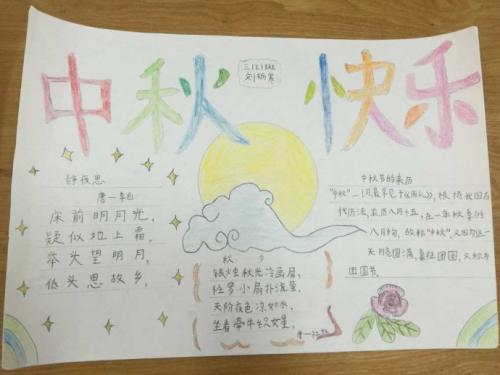 中秋快乐
三（2）班
静夜思
唐—李白
床前明月光，
疑似地上霜，
举头望明月，
低头思故乡，
秋夕
银烛秋光冷画屏，
轻罗小扇扑流萤，
天阶夜色凉如水，
坐看牵牛织女星，
唐—
中秋节的来历
"中秋"一词最早见于《周礼》，根据我国古
代历法，农历八月十五，在一年秋季的
八月中旬，故称"中秋"，又因为这一
天月亮圆满，象征团圆，又称为
团圆节，